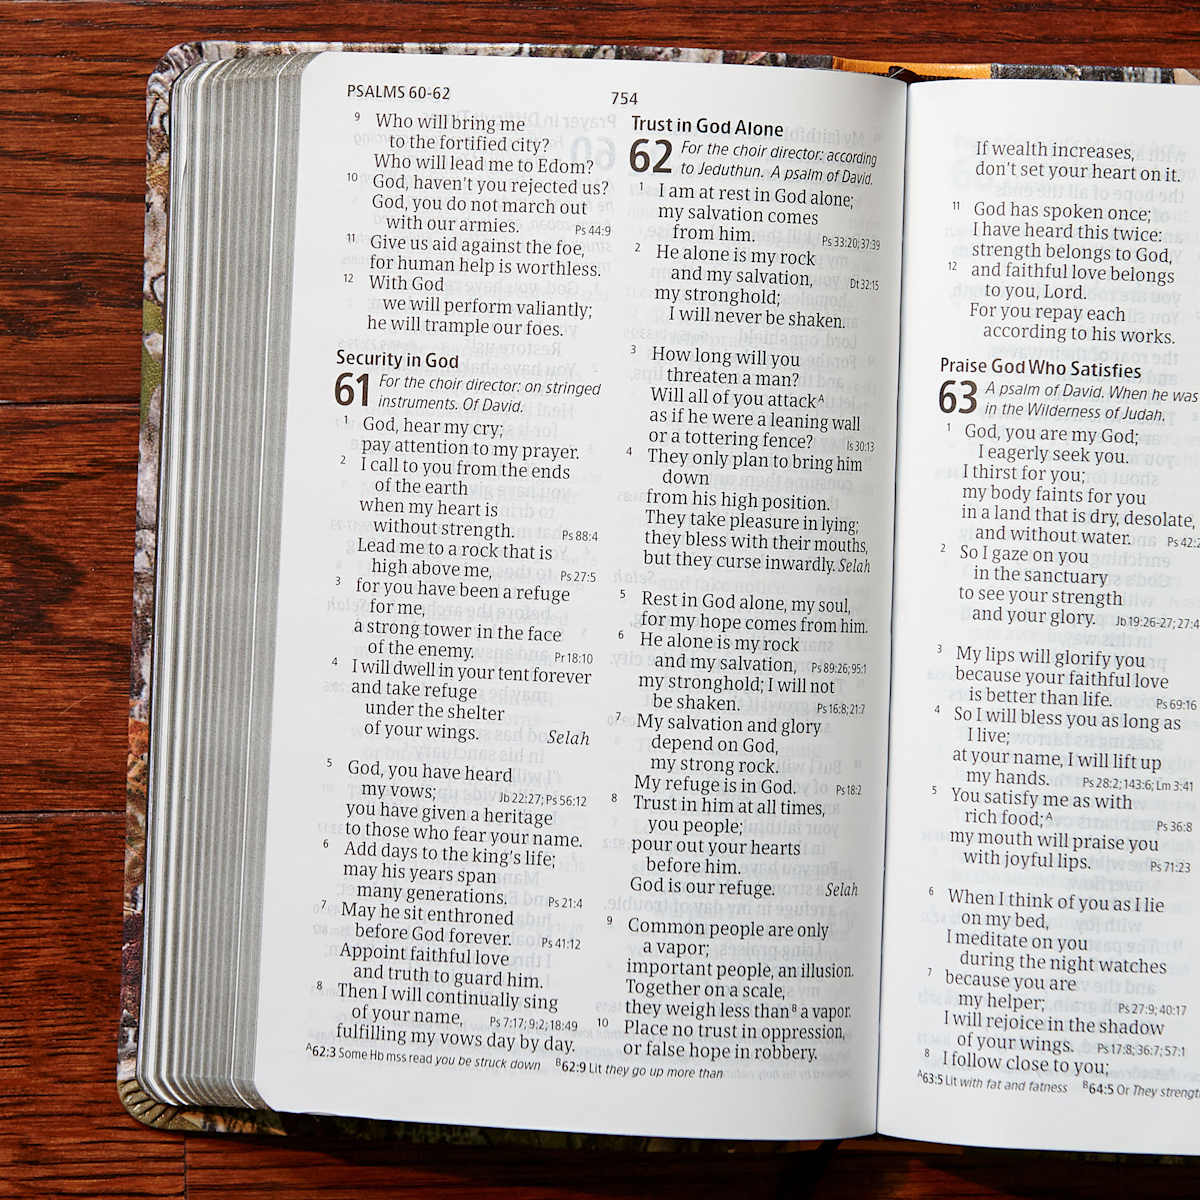 PSALMS 60-62
754
9 Who will bring me
to the fortified city?
Who will lead me to Edom?
10 God, haven't you rejected us?
God, you do not march out
with our armies. Ps 44:9
11 Give us aid against the foe,
for human help is worthless.
12 With God
we will perform valiantly;
he will trample our foes.
Security in God
61 For the choir director: on stringed
instruments. Of David.
1 God, hear my cry;
pay attention to my prayer.
2 I call to you from the ends
of the earth
when my heart is
without strength. Ps 88:4
Lead me to a rock that is
high above me, Ps 27:5
3 for you have been a refuge
for me,
a strong tower in the face
of the enemy. Pr 18:10
4 I will dwell in your tent forever
and take refuge
under the shelter
of your wings. Selah
5 God, you have heard
my vows; Jb 22:27; Ps 56:12
you have given a heritage
to those who fear your name.
6 Add days to the king's life;
may his years span
many generations. Ps 21:4
7 May he sit enthroned
before God forever. Ps 41:12
Appoint faithful love
and truth to guard him.
8 Then I will continually sing
of your name, Ps 7:17; 9:2; 18:49
fulfilling my vows day by day.
Trust in God Alone
62 For the choir director: according
to Jeduthun. A psalm of David.
1 I am at rest in God alone;
my salvation comes
from him. Ps 33:20; 37:39
2 He alone is my rock
and my salvation, Dt 32:15
my stronghold;
I will never be shaken.
3 How long will you
threaten a man?
Will all of you attack A
as if he were a leaning wall
or a tottering fence? Is 30:13
4 They only plan to bring him
down
from his high position.
They take pleasure in lying;
they bless with their mouths,
but they curse inwardly. Selah
5 Rest in God alone, my soul,
for my hope comes from him.
6 He alone is my rock
and my salvation, Ps 89:26; 95:1
my stronghold; I will not
be shaken. Ps 16:8; 21:7
7 My salvation and glory
depend on God,
my strong rock.
My refuge is in God. Ps 18:2
8 Trust in him at all times,
you people;
pour out your hearts
before him.
God is our refuge. Selah
9 Common people are only
a vapor;
important people, an illusion.
Together on a scale,
they weigh less than B a vapor.
10 Place no trust in oppression,
or false hope in robbery.
A 62:3 Some Hb mss read you be struck down B 62:9 Lit they go up more than
If wealth increases,
don't set your heart on it.
11 God has spoken once;
I have heard this twice:
strength belongs to God,
12 and faithful love belongs
to you, Lord.
For you repay each
according to his works.
Praise God Who Satisfies
63 A psalm of David. When he was
in the Wilderness of Judah.
1 God, you are my God;
I eagerly seek you.
I thirst for you;
my body faints for you
in a land that is dry, desolate,
and without water. Ps 42:2
2 So I gaze on you
in the sanctuary
to see your strength
and your glory. Jb 19:26-27; 27:4
3 My lips will glorify you
because your faithful love
is better than life. Ps 69:16
4 So I will bless you as long as
I live;
at your name, I will lift up
my hands. Ps 28:2; 143:6; Lm 3:41
5 You satisfy me as with
rich food; A Ps 36:8
my mouth will praise you
with joyful lips. Ps 71:23
6 When I think of you as I lie
on my bed,
I meditate on you
during the night watches
7 because you are
my helper; Ps 27:9; 40:17
I will rejoice in the shadow
of your wings. Ps 17:8; 36:7; 57:1
8 I follow close to you;
A 63:5 Lit with fat and fatness B 64:5 Or They